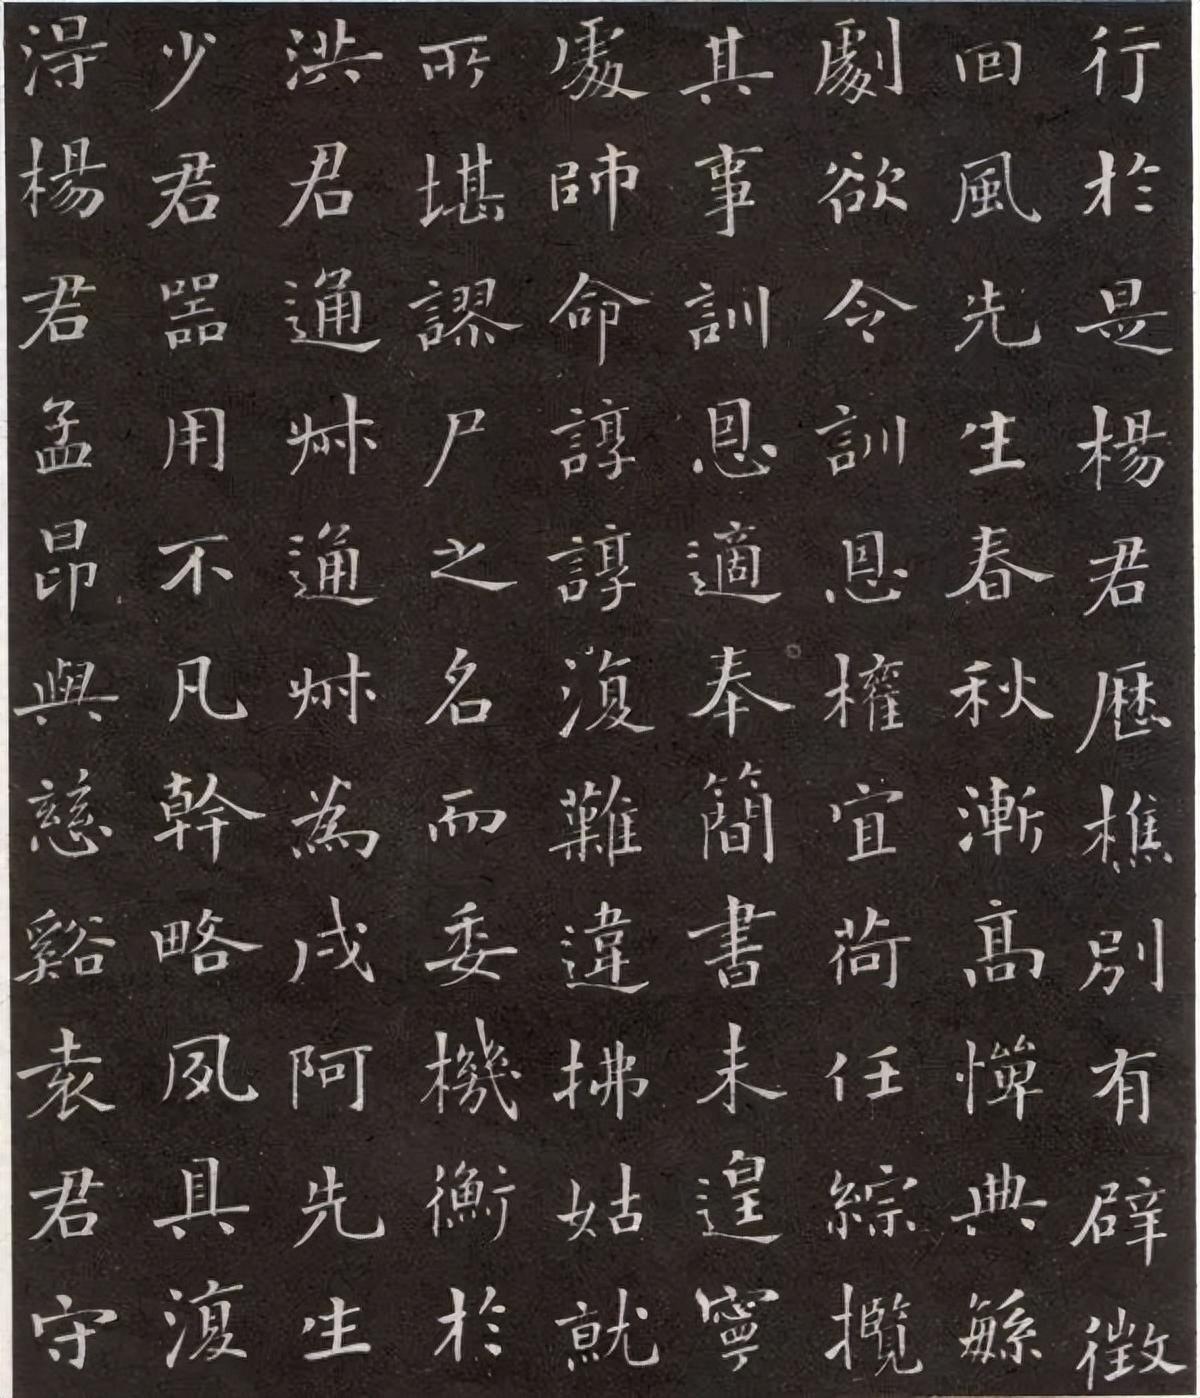 行於是楊君歷樵別有辟徵
回風先生春秋漸高憚典緐
劇欲令訓恩權宜荷任綜攬
其事訓恩適奉簡書未遑寧
處師命諄諄復難違拂姑就
所堪謬尸之名而委機衡於
洪君通艸通艸為戌阿先生
少君器用不凡幹略夙具復
得楊君孟昂與慈谿袁君守